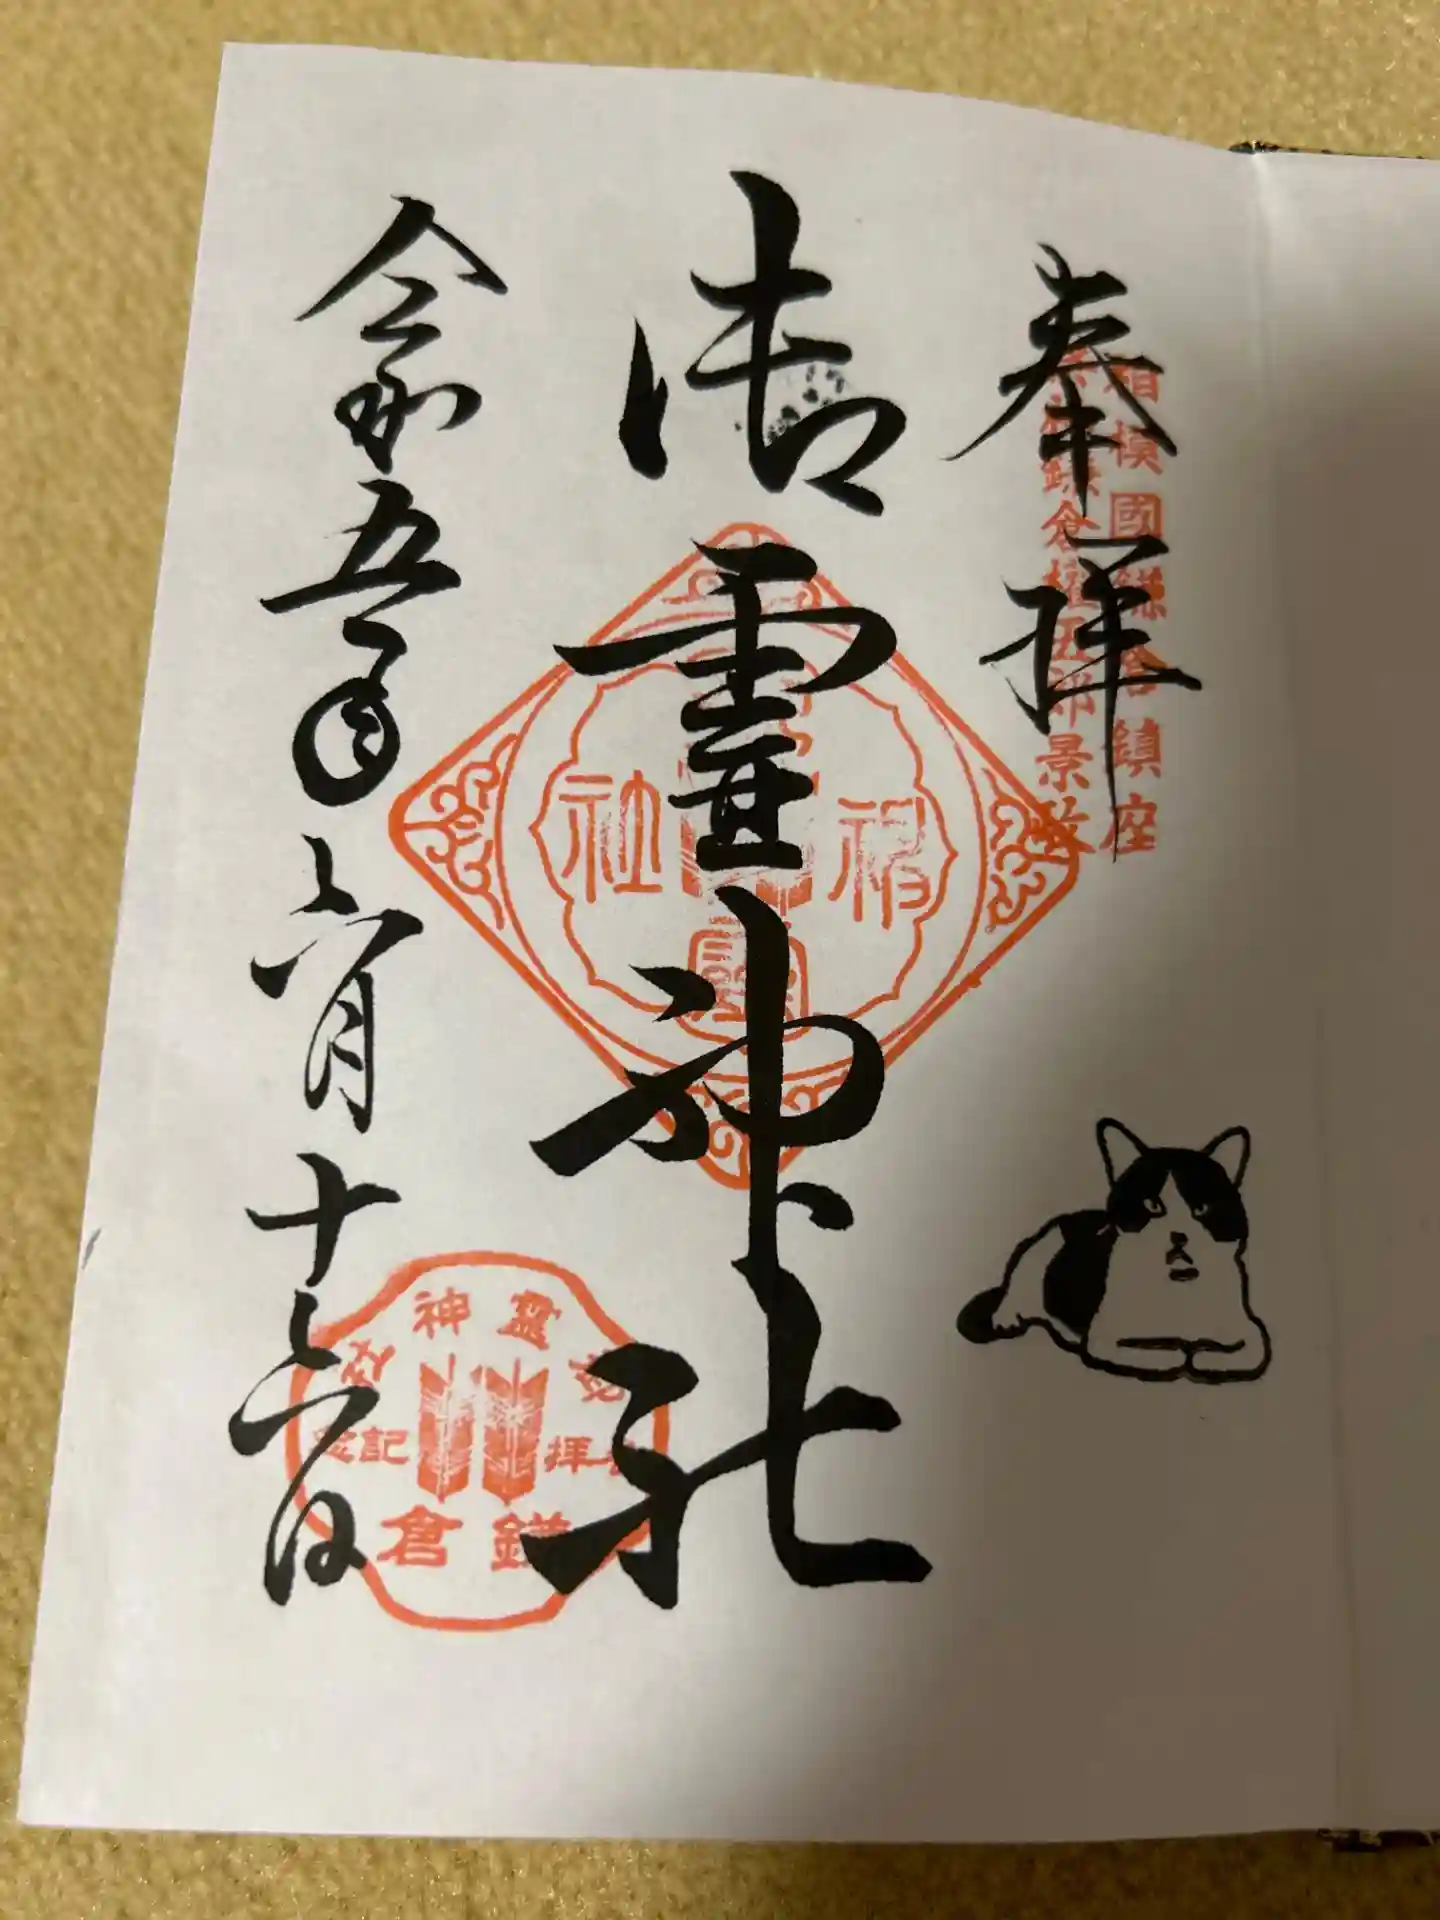 奉拝
相模國鎌倉鎮座
鎌倉権五郎景政
御霊神社
令和五年六月十六日
神社
御霊神社
参拝記念
鎌倉